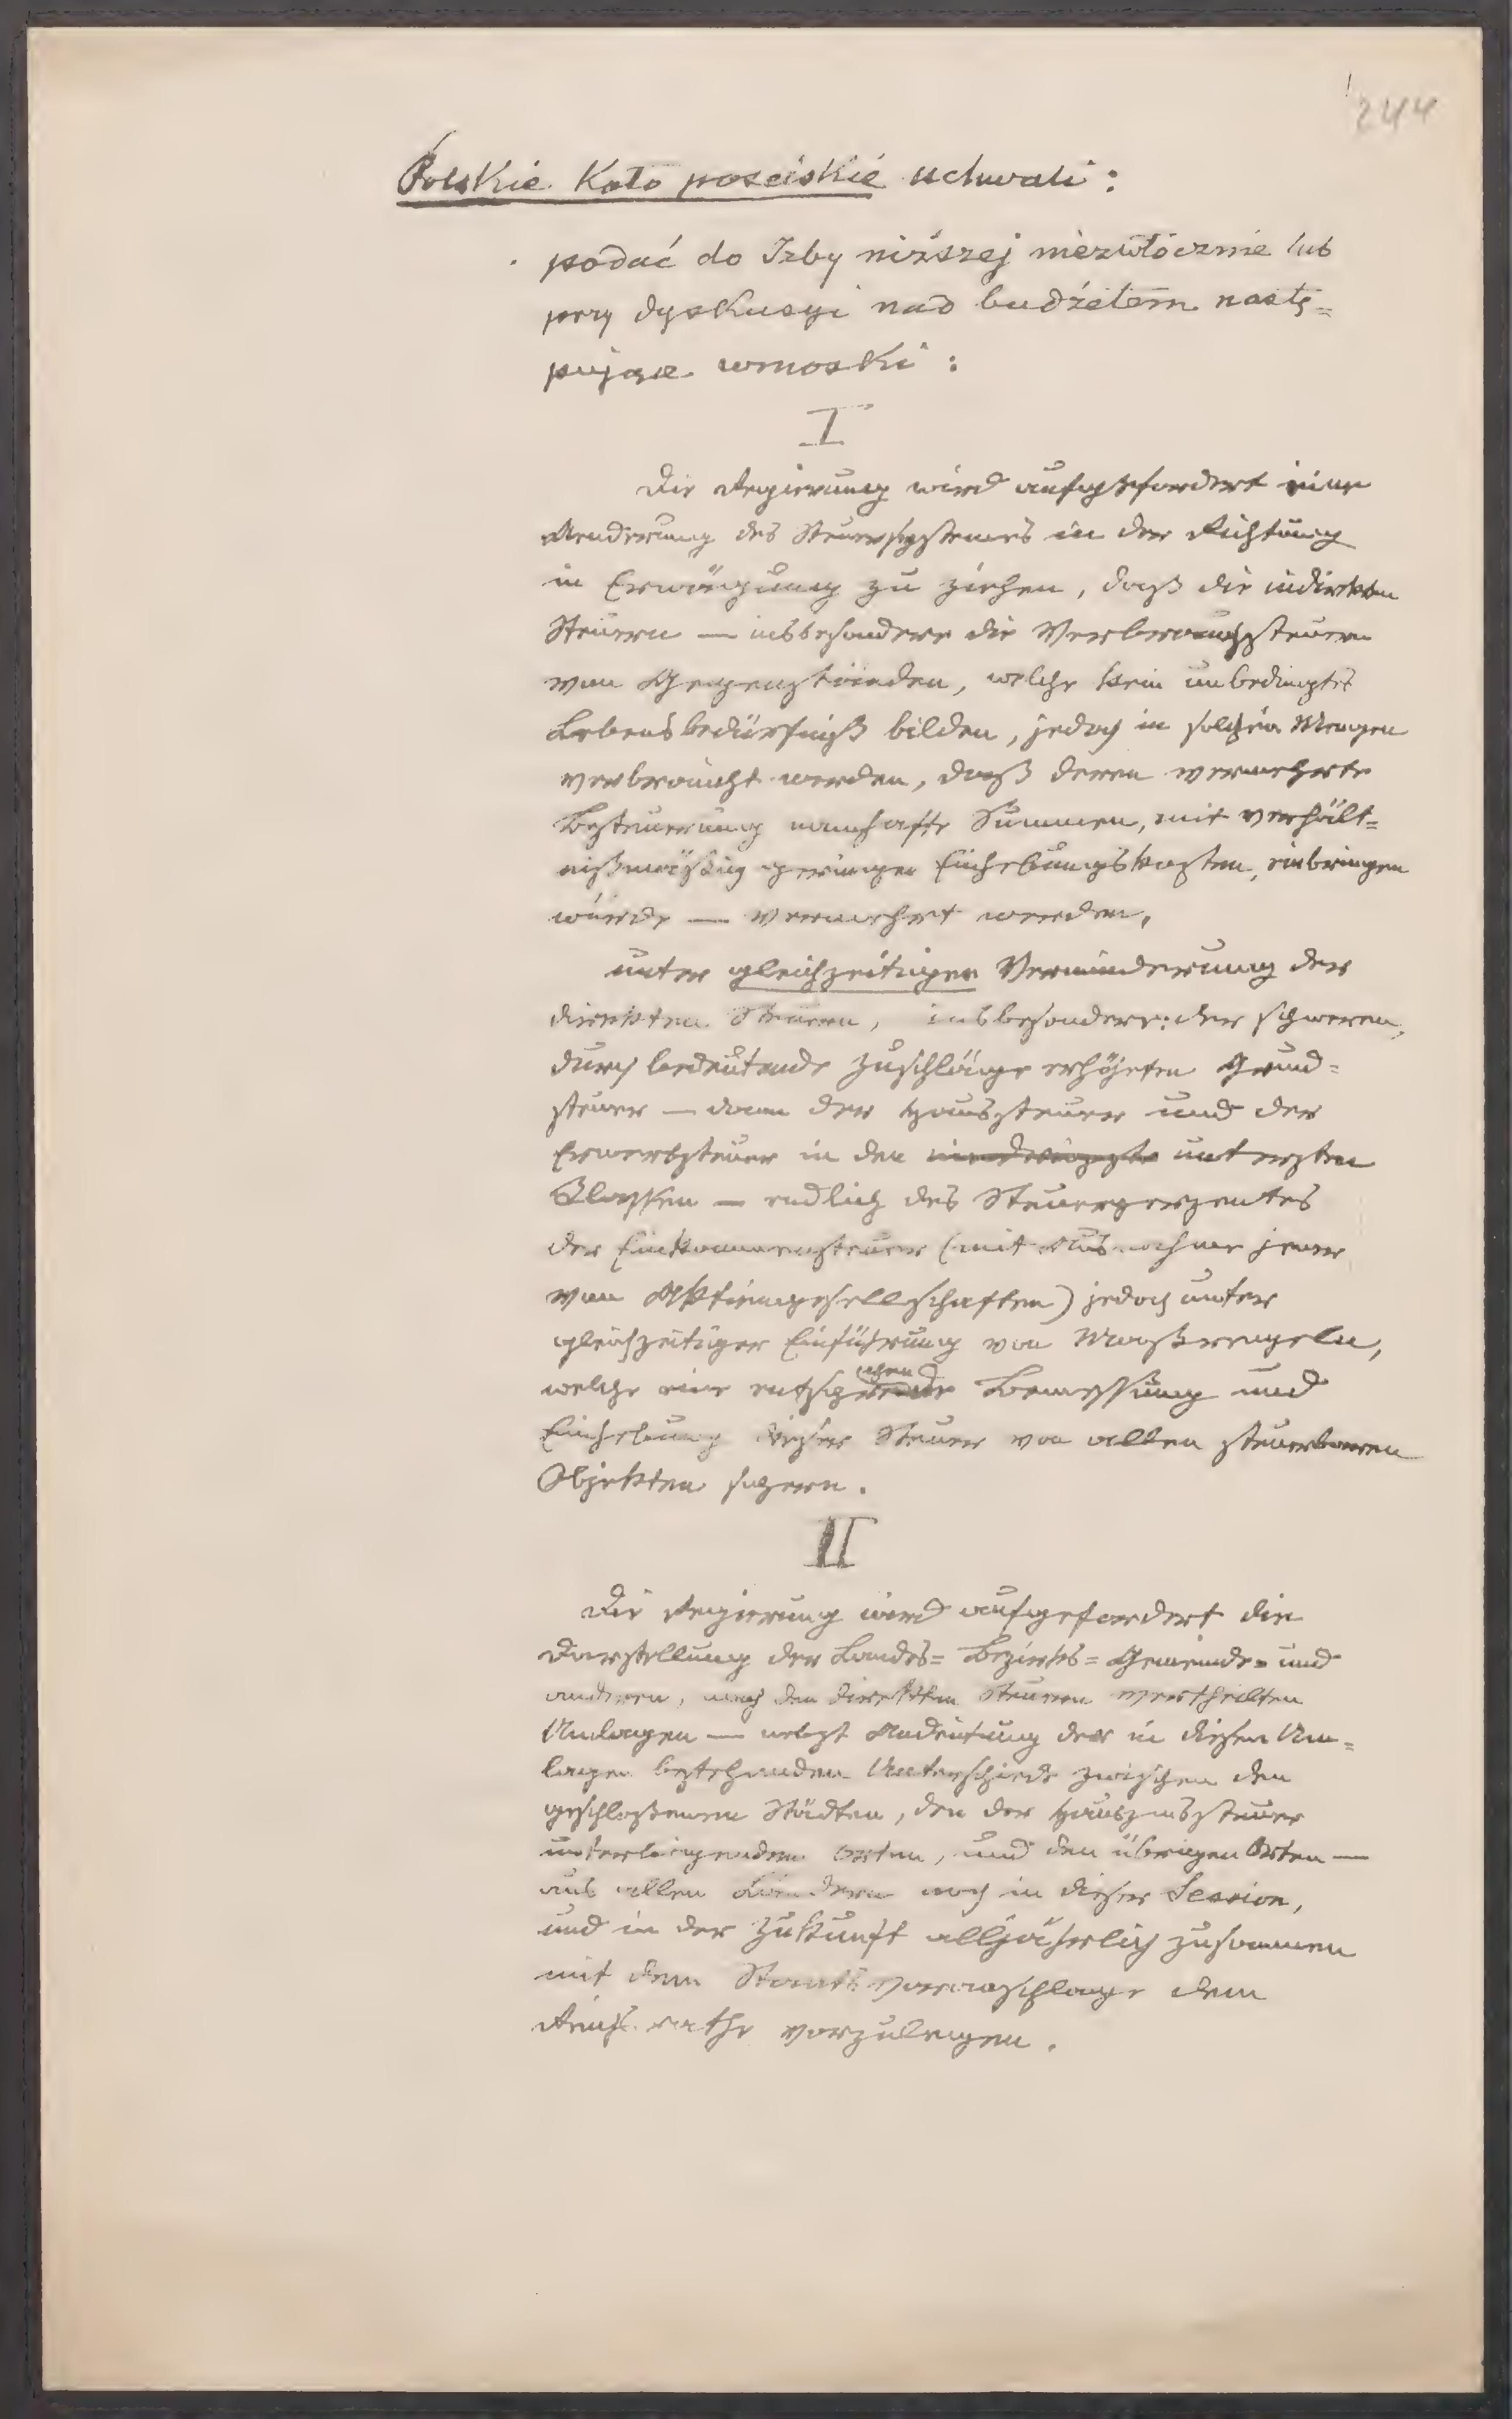 244
Polskie Koło poselskie uchwali:
podać do Izby niższej niezwłocznie lub
przy dyskusyi nad budżetem nastę=
pujące wnioski:
I
Die Regierung wird aufgefordert eine
Aenderung des Steuersystemes in der Richtung
in Erwägung zu ziehen, daß die indirekten
Steuern — insbesondere die Verbrauchssteuern
von Gegenständen, welche kein unbedingtes
Lebensbedürfniß bilden, jedoch in solchen Mengen
verbraucht werden, daß deren vermehrte
Besteuerung namhafte Summen, mit verhält=
nißmäßig geringen Einhebungskosten, einbringen
würde — vermehrt werden,
unter gleichzeitiger Verminderung der
direkten Steuern, insbesondere: der schweren,
durch bedeutende Zuschläge erhöhten Grund=
steuer — dann der Haussteuer und der
Erwerbsteuer in den untersten
Classen — endlich des Steuerperzentes
der Einkommensteuer (mit Ausnahme jener
von Aktiengesellschaften) jedoch unter
gleichzeitiger Einführung von Maßregeln,
welche eine Bemessung und
Einhebung dieser Steuer von allen steuerbaren
Objekten sichern.
II
Die Regierung wird aufgefordert die
Darstellung der Landes= Bezirks= Gemeinde= und
anderen, nach den direkten Steuern vertheilten
Umlagen — nebst Andeutung der in diesen Um=
lagen bestehenden Unterschiede zwischen den
geschloßenen Städten, den der Hauszinssteuer
unterliegenden Orten, und den übrigen Orten —
aus allen Ländern noch in dieser Session,
und in der Zukunft alljährlich zusammen
mit dem Staatsvoranschlage dem
Reichsrathe vorzulegen.